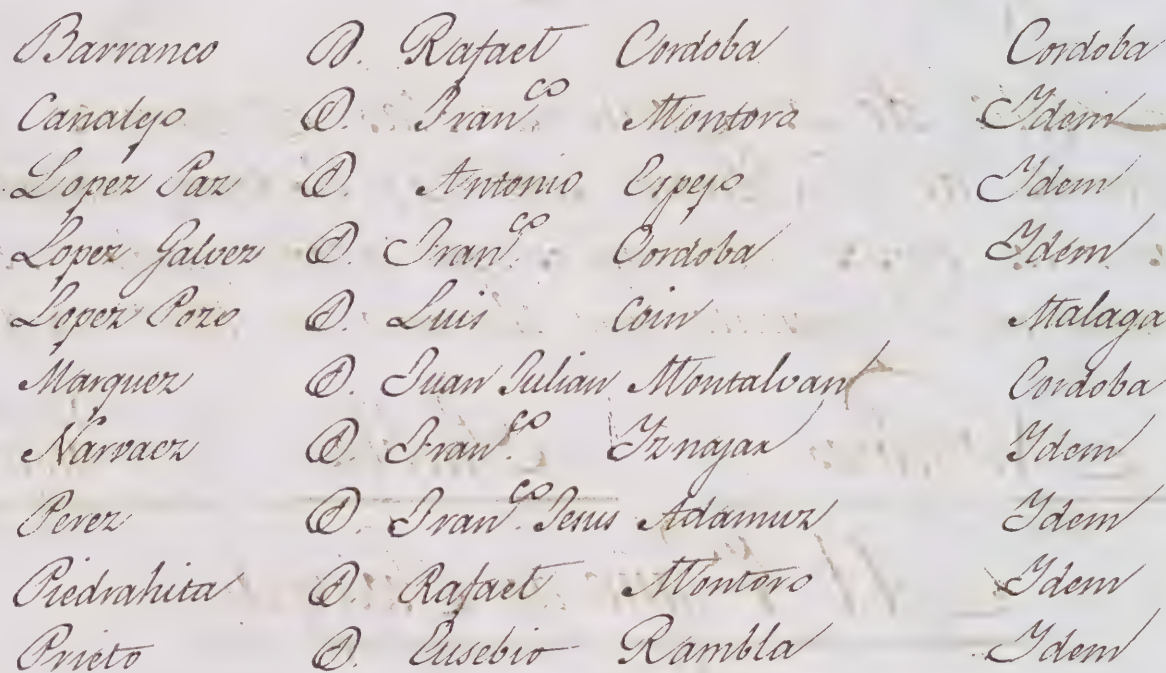 Barranco D. Rafael Cordoba Cordoba
Canalejo D. Fran.co Montoro Idem
Lopez Paz D. Antonio Espejo Idem
Lopez Galvez D. Fran.co Cordoba Idem
Lopez Pozo D. Luis Coin Malaga
Marquez D. Juan Julian Montalvan Cordoba
Narvaez D. Fran.co Iznajar Idem
Perez D. Fran.co Jesus Adamuz Idem
Piedrahita D. Rafael Montoro Idem
Prieto D. Eusebio Rambla Idem